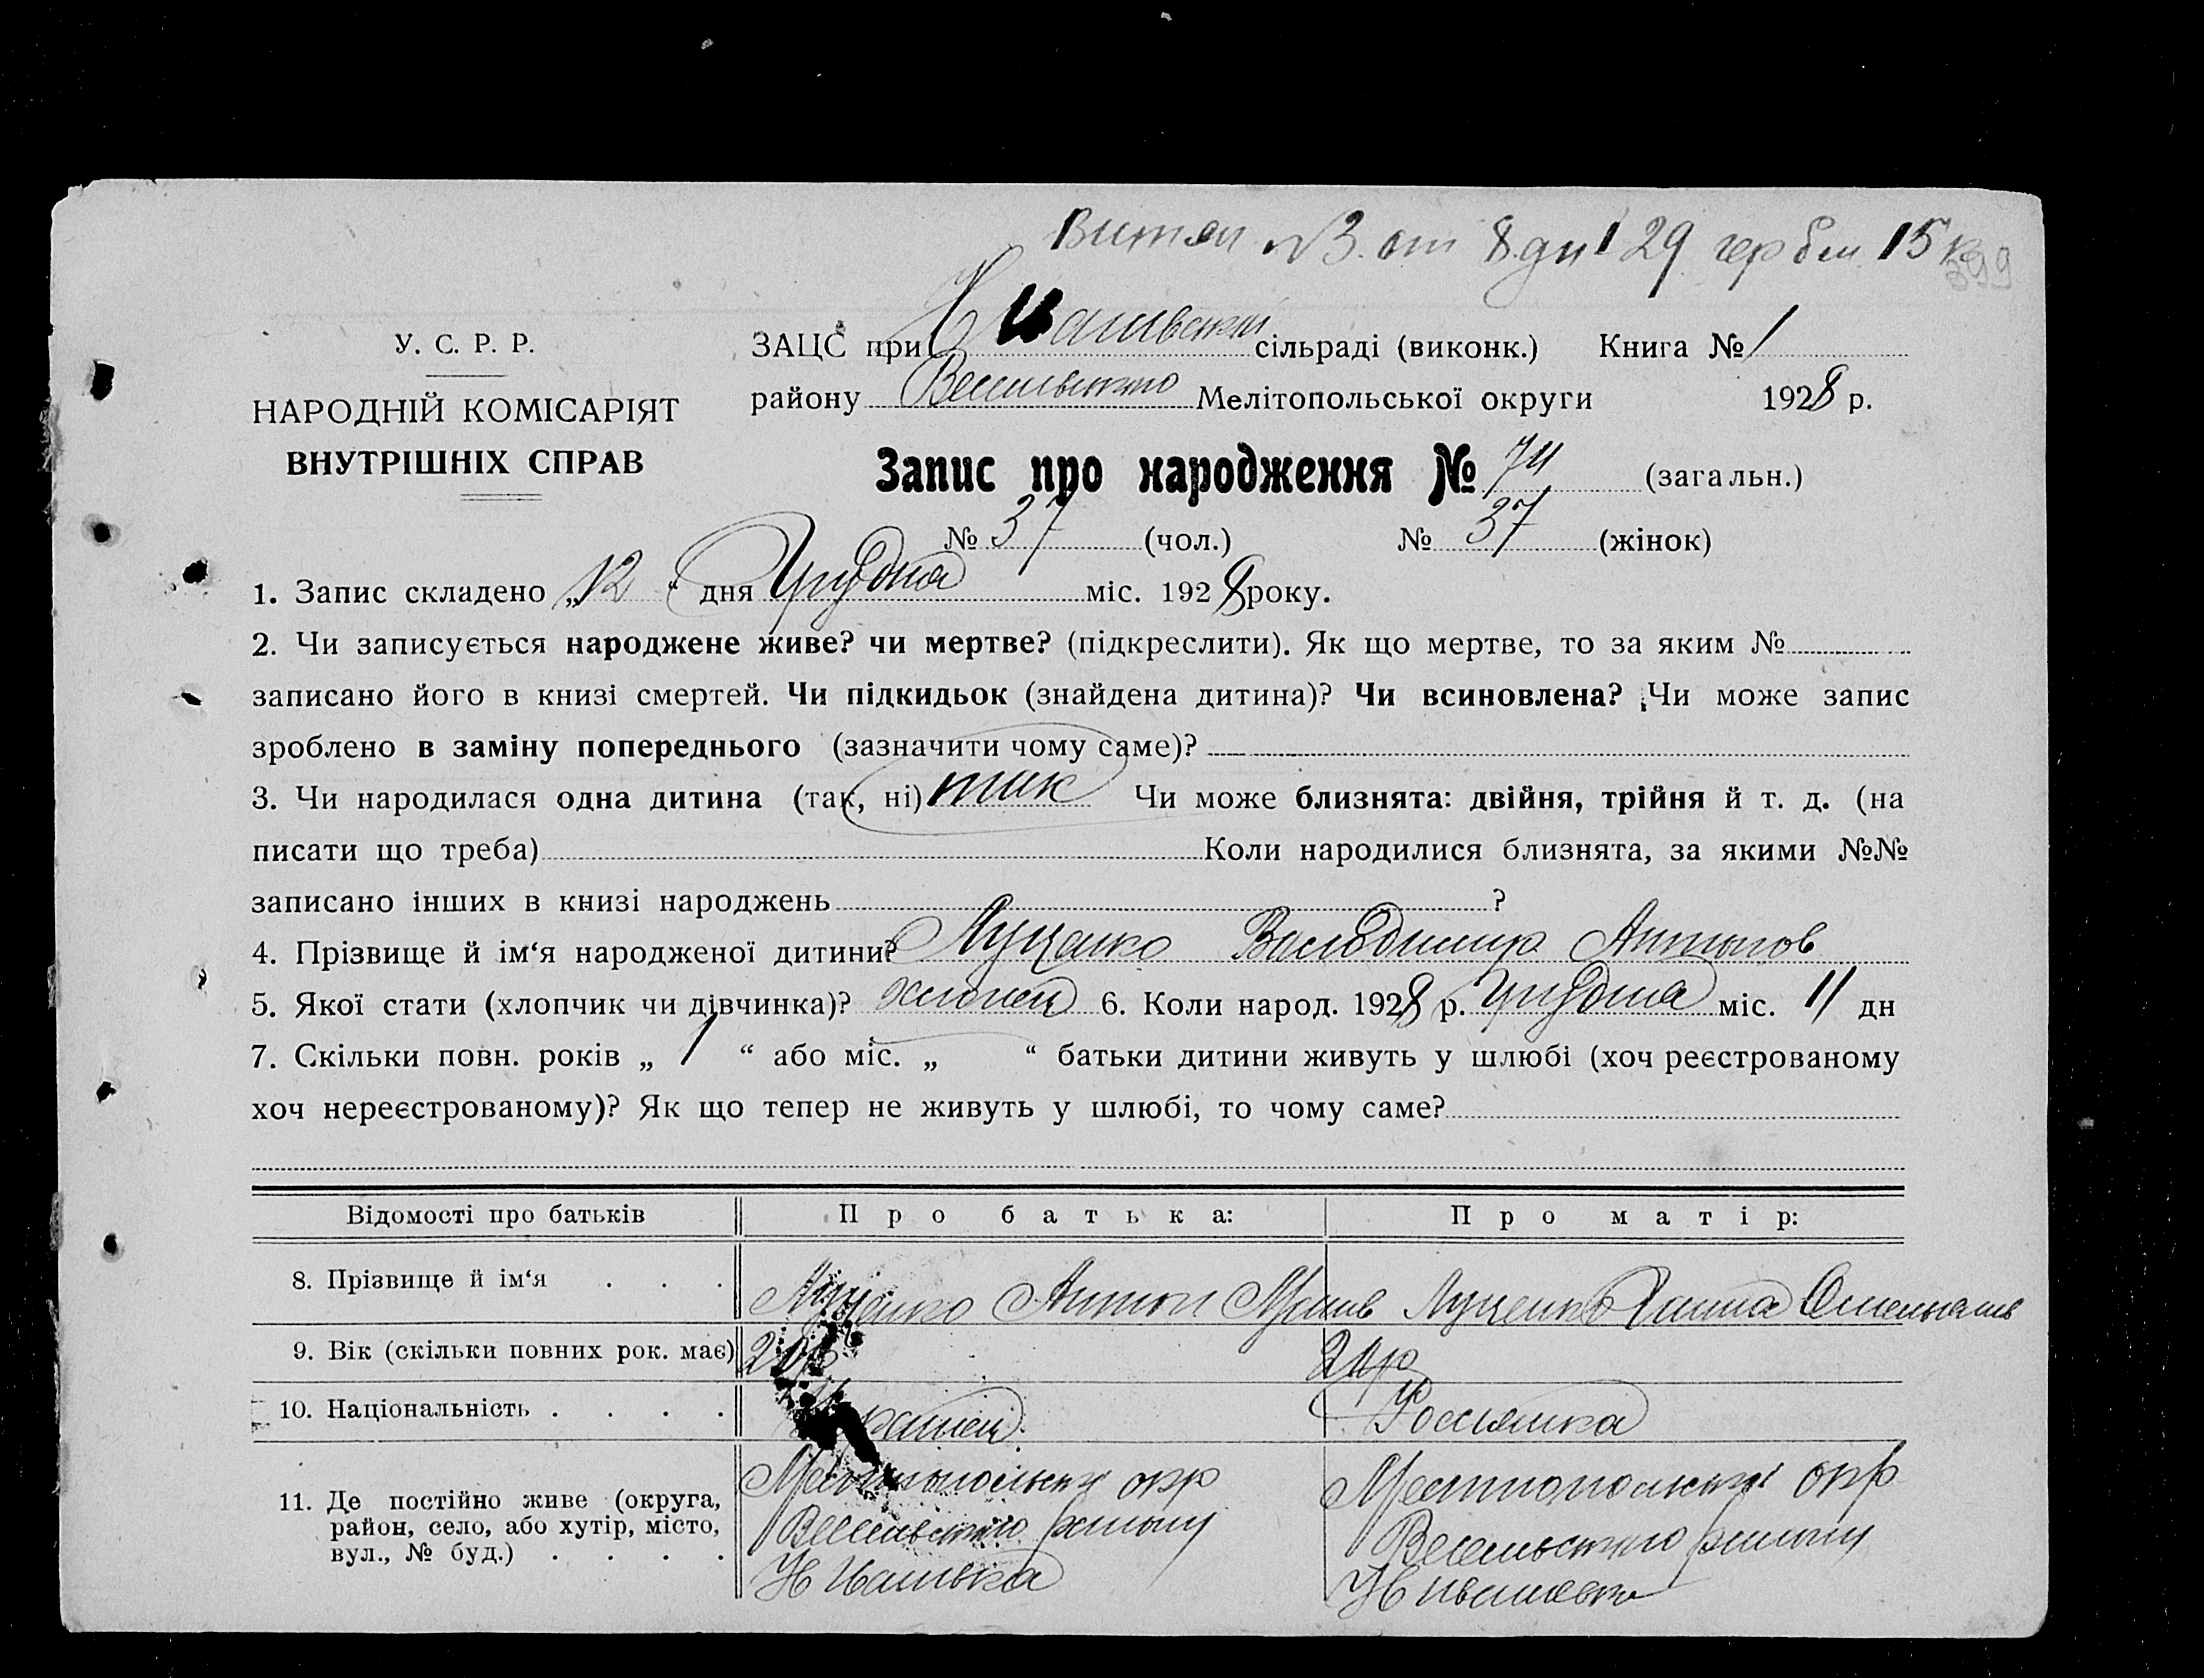 Витяг №3. от 8.дн 1 29 гербом 15 к
399
У. С. Р. Р.
НАРОДНІЙ КОМІСАРІЯТ
ВНУТРІШНІХ СПРАВ
ЗАЦС при Н сільраді (виконк.) Книга № 1
району Веселівсько Мелітопольської округи 1928 р.
Запис про народження № 74 (загальн.)
№ 37 (чол.) № 37 (жінок)
1. Запис складено „12“ дня Грудня міс. 1928 року.
2. Чи записується народжене живе? чи мертве? (підкреслити). Як що мертве, то за яким №
записано його в книзі смертей. Чи підкидьок (знайдена дитина)? Чи всиновлена? Чи може запис
зроблено в заміну попереднього (зазначити чому саме)?
3. Чи народилася одна дитина (так, ні) так Чи може близнята: двійня, трійня й т. д. (на
писати що треба) Коли народилися близнята, за якими №№
записано інших в книзі народжень ?
4. Прізвище й ім‘я народженої дитини? Луценко Володимир Антонов
5. Якої стати (хлопчик чи дівчинка)? хлопец 6. Коли народ. 1928 р. Грудня міс. 11 дн
7. Скільки повн. років „ 1 “ або міс. „ “ батьки дитини живуть у шлюбі (хоч реєстрованому
хоч нереєстрованому)? Як що тепер не живуть у шлюбі, то чому саме?
Відомості про батьків Про батька: Про матір:
8. Прізвище й ім‘я . . . Луценко Антон Луценко Ганна
9. Вік (скільки повних рок. має) 20р
10. Національність . . . . Украінец Россиянка
11. Де постійно живе (округа,
район, село, або хутір, місто,
вул., № буд.) . . . .
Мелітопольськи окр
Веселівсько району
Н Ивашівка
Мелітопольськи окр
Веселівсько району
Н